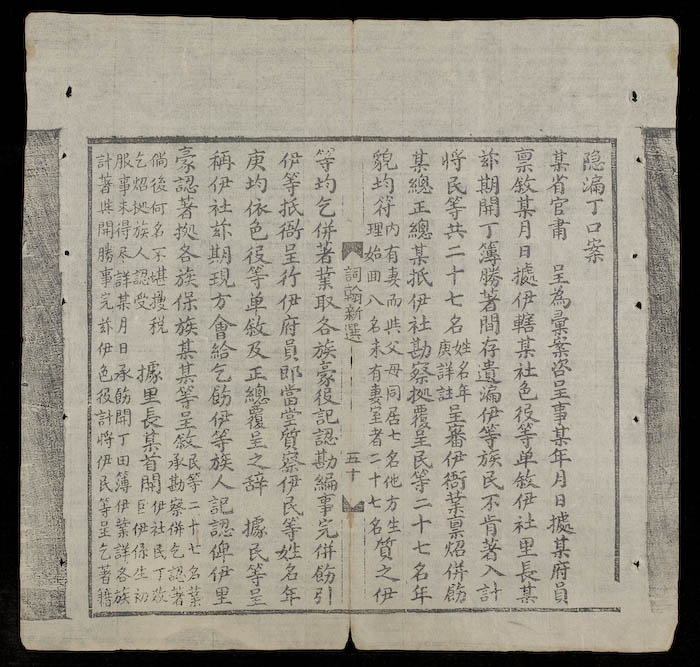 隐漏丁口案
某省官肅　呈為彙案咨呈事某年月日據某府員
禀敘某月日據伊轄某社色役等单敘伊社里長某
玆期開丁簿勝著間存遺漏伊等族民不肯著入計
將民等共二十七名姓名年庚詳註呈審伊衙葉禀炤併飭
某總正總某抵伊社勘察拠覆呈民等二十七名年
貌均符內有妻而共父母同居七名他方生理始囬八名未有妻室者二十七名質之伊
詞翰新選　五十
等均乞併著葉取各族豪役記認勘編事完併飭引
伊等抵衙呈行伊府員郎當堂質察伊民等姓名年
庚均依色役等单敘及正總覆呈之辞　據民等呈
称伊社玆期現方會給乞飭伊等族人記認俾伊里
豪認著拠各族保族某某等呈敘民等二十七名葉承勘察併乞認著
倘後何名不堪搜税乞炤拠族人認受　據里長某首開伊社民丁玆巨伊係生初
服事未得尽詳某月日承飭開丁田簿伊葉詳各族
計著共開勝事完玆伊色役計將伊民等呈乞著籍